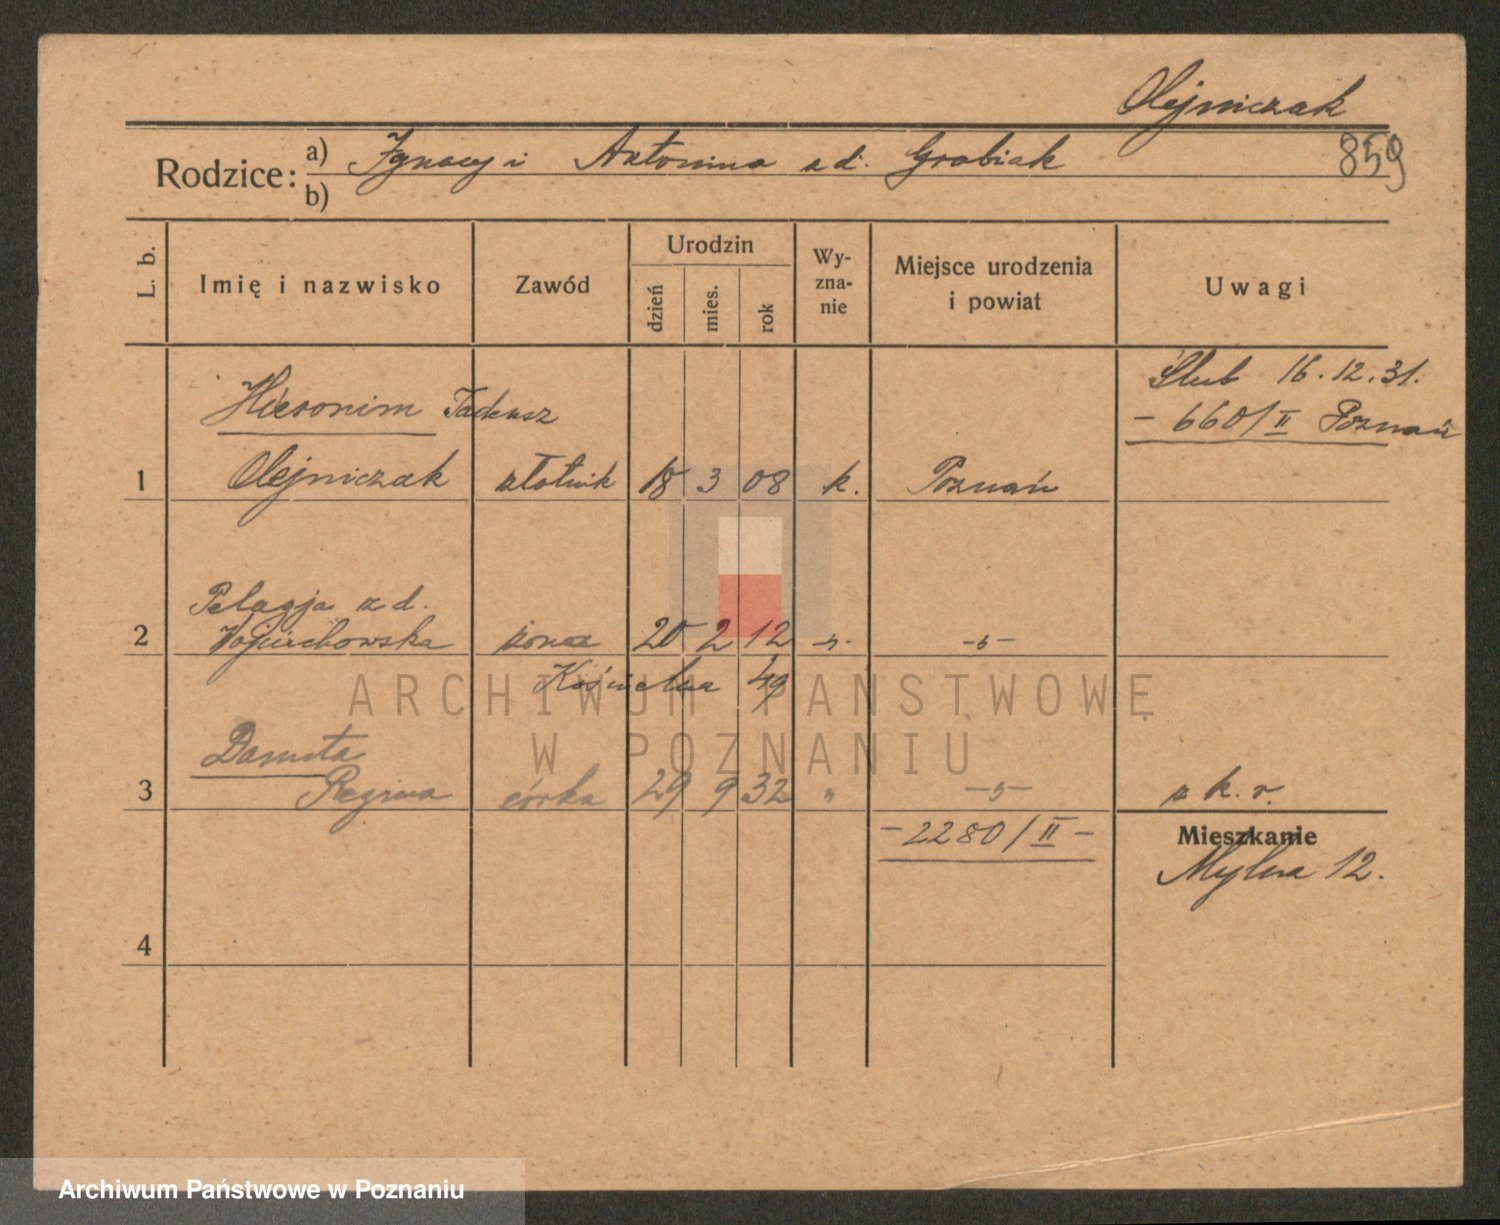 Olejniczak
Rodzice: a) Ignacy i Antonina z d. Grabiak 859
b)
L. b. Imię i nazwisko Zawód Urodzin dzień mies. rok Wy-zna-nie Miejsce urodzenia i powiat Uwagi
Ślub 16.12.31.
- 660/II Poznań
Hieronim Tadeusz
1 Olejniczak złotnik 18 3 08 k. Poznań
Pelagja z d.
2 Wojciechowska żona 20 2 12 -"- -"-
Kościelna 49
Danuta
3 Regina córka 29 9 32 " -"- z k. r.
- 2280/II -
Mieszkanie
Mylna 12.
4
ARCHIWUM PAŃSTWOWE
W POZNANIU
Archiwum Państwowe w Poznaniu